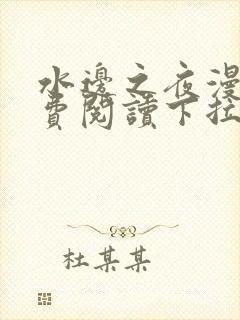 水邊之夜漫
費閱讀下拉
杜某某